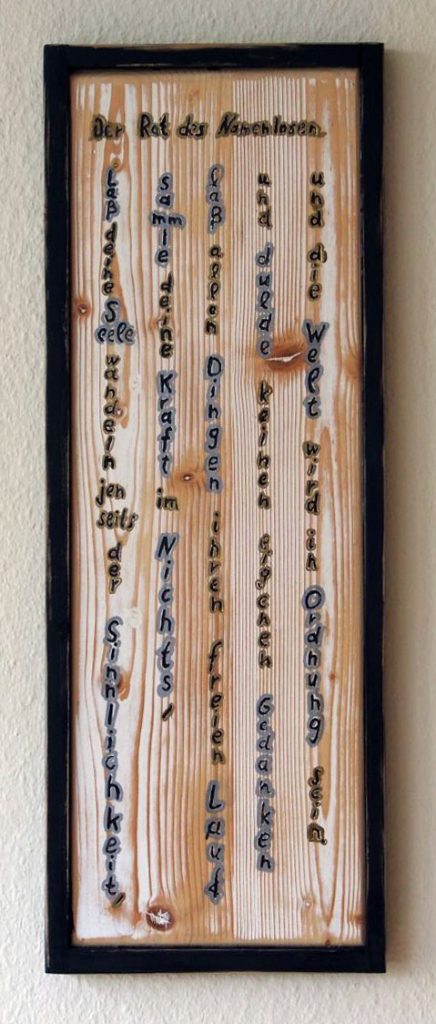 Der Rat des Namenlosen
Laß deine Seele wandeln jenseits der Sinnlichkeit,
sammle deine Kraft im Nichts,
laß allen Dingen ihren freien Lauf
und dulde keinen eigenen Gedanken
und die Welt wird in Ordnung sein.